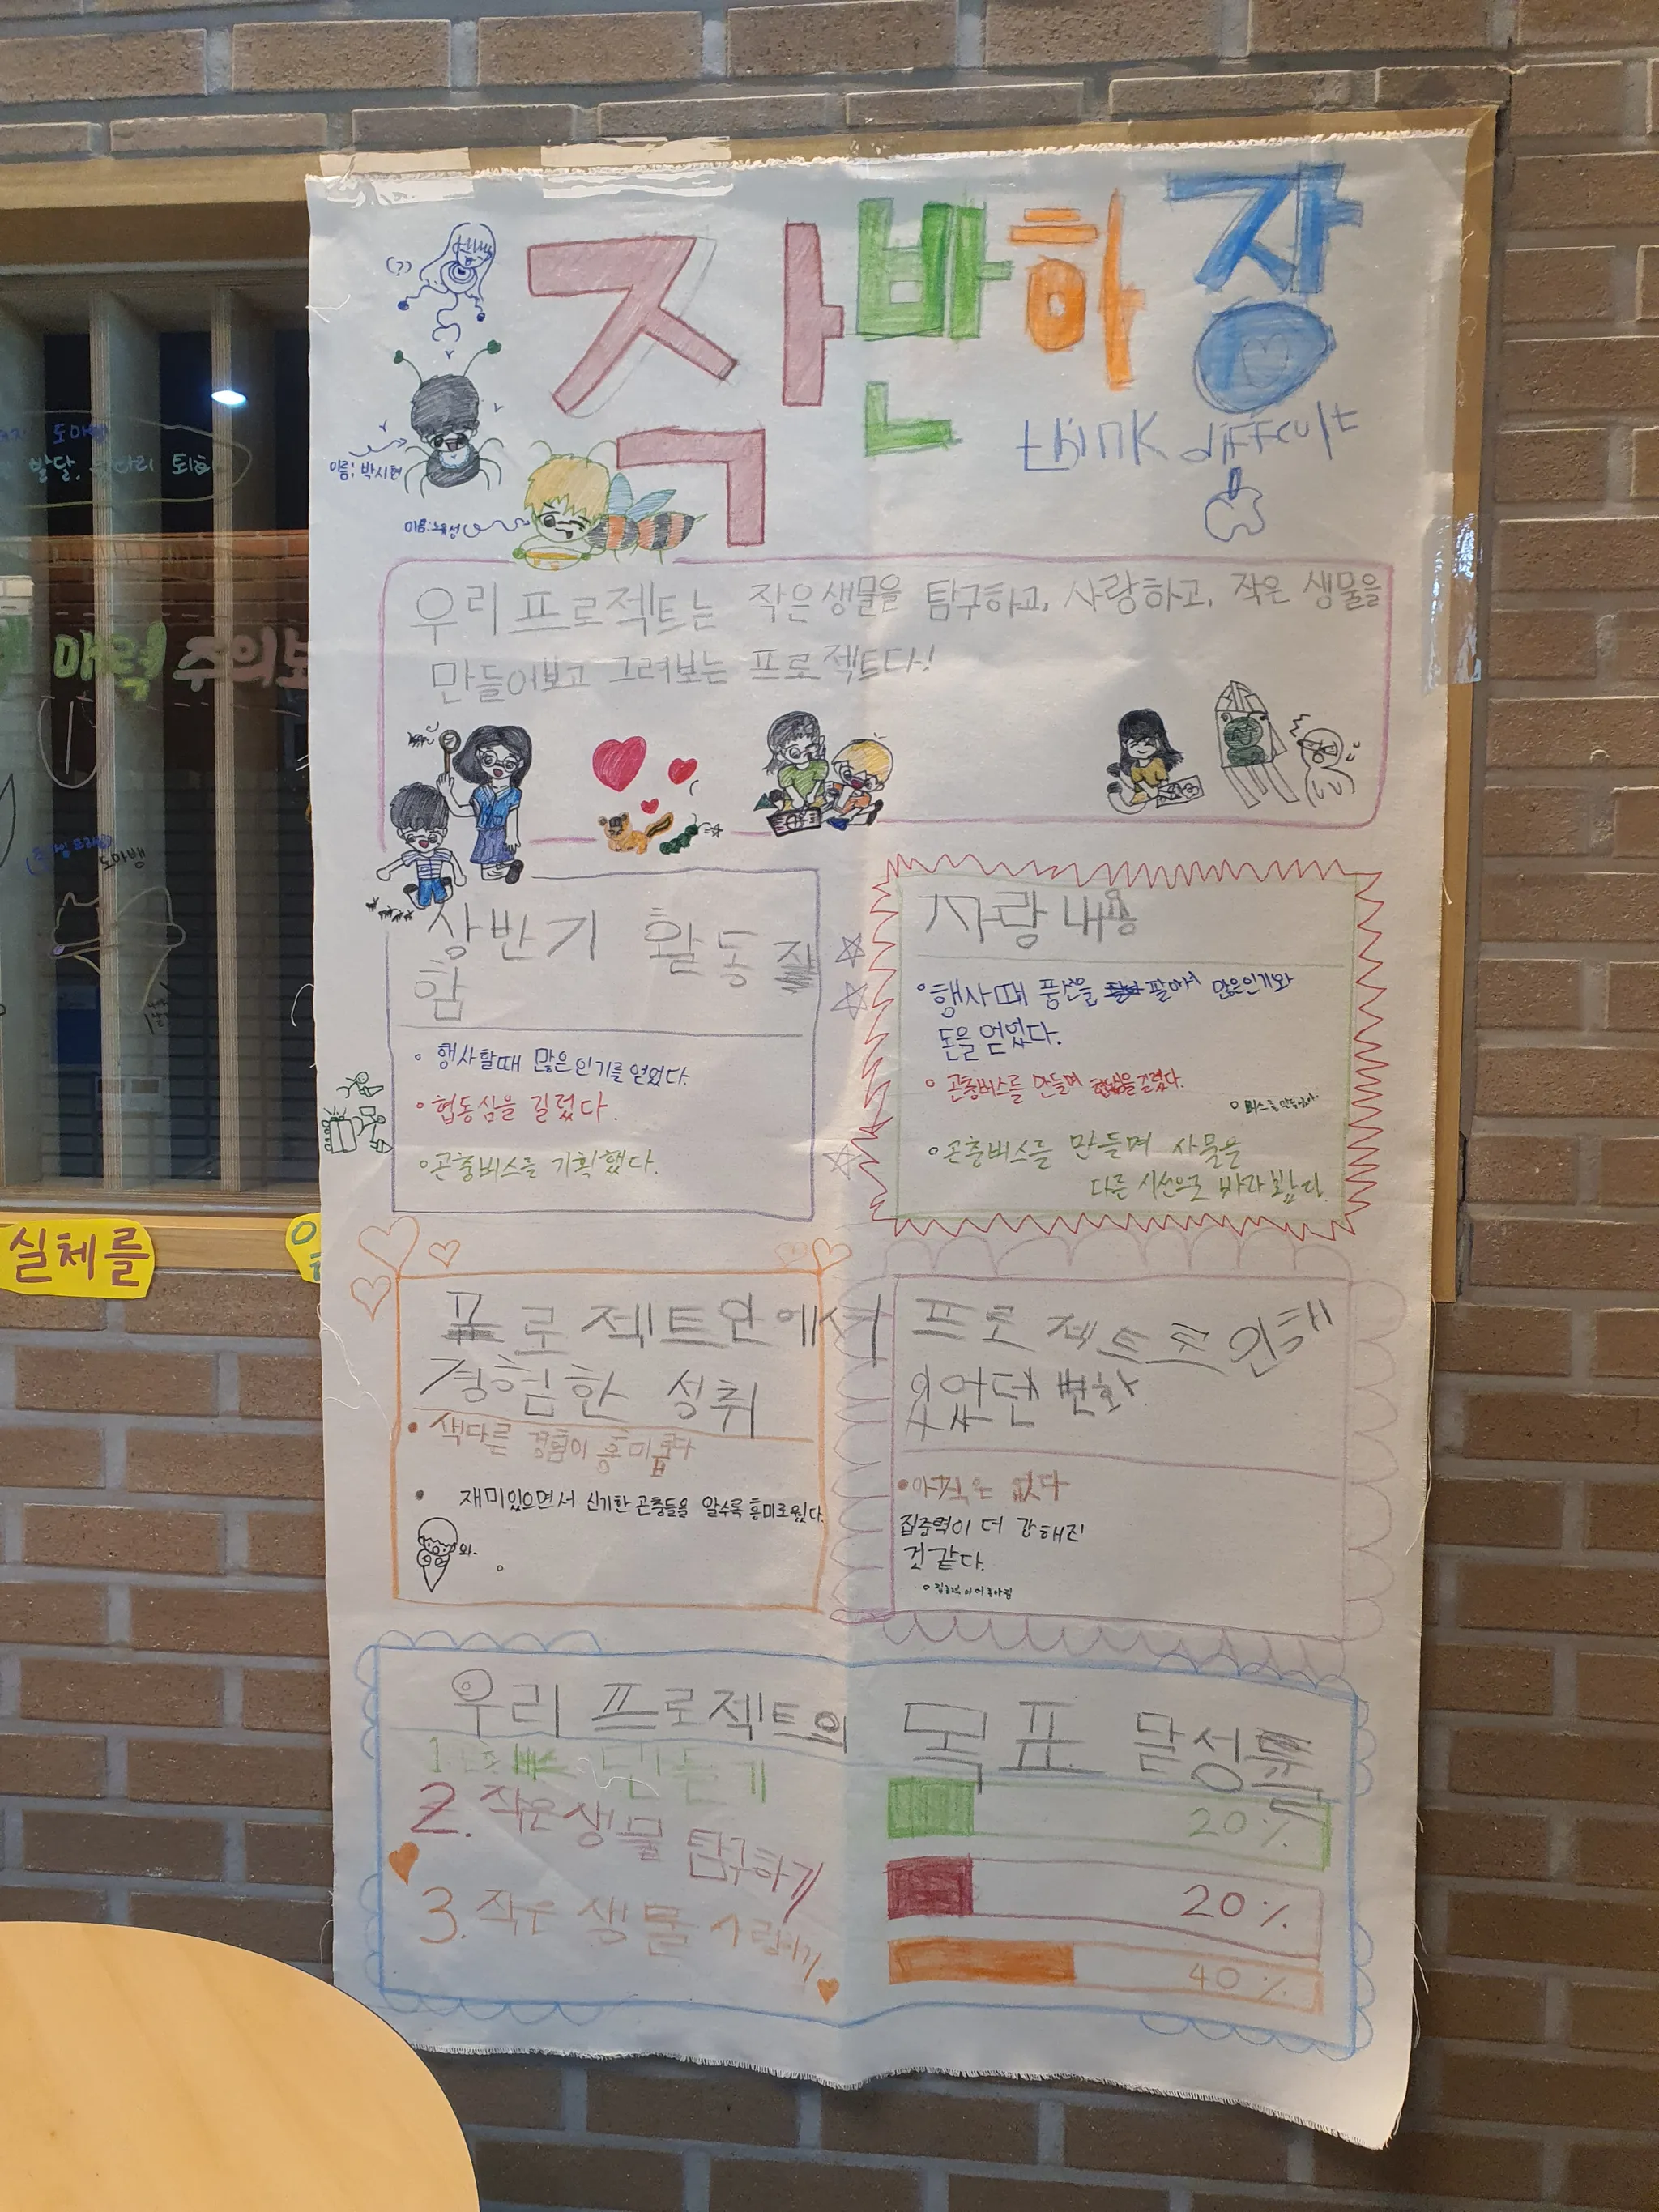 작반하장
think difficult
(??)
이름: 박시현
우리 프로젝트는 작은생물을 탐구하고, 사랑하고, 작은 생물을
만들어보고 그려보는 프로젝트다!
상반기 활동
함
• 행사할때 많은인기를 얻었다.
• 협동심을 길렀다.
• 곤충버스를 기획했다.
자랑내용
• 행사때 풍선을 팔아서 많은인기와
돈을 얻었다.
• 곤충버스를 만들며 협동심을 길렀다.
• 버스를 만들었다.
• 곤충버스를 만들며 사물을
다른 시선으로 바라봤다.
프로젝트안에서
경험한 성취
• 색다른 경험이 흥미롭다
• 재미있으면서 신기한 곤충들을 알수록 흥미로웠다.
와-
프로젝트로인해
있었던 변화
• 아직은 없다
집중력이 더 강해진
것 같다.
우리 프로젝트의 목표 달성률
1. 만들기
20%
2. 작은생물 탐구하기
20%
3. 작은 생물 사랑하기
40%
도마뱀
발달, 퇴화
매력 주의보
도마뱀
실체를